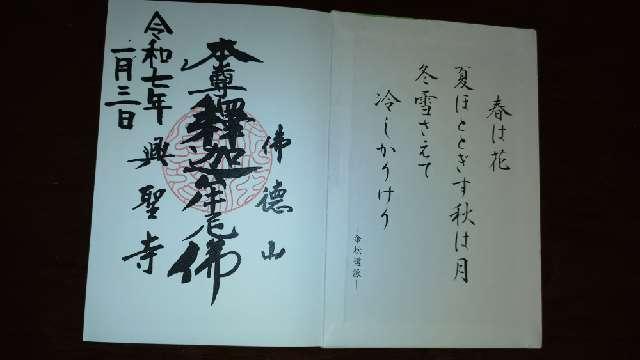 春は花
夏ほととぎす秋は月
冬雪さえて
冷しかりけり
佛德山
本尊釋迦牟尼佛
興聖寺
令和七年
一月三日